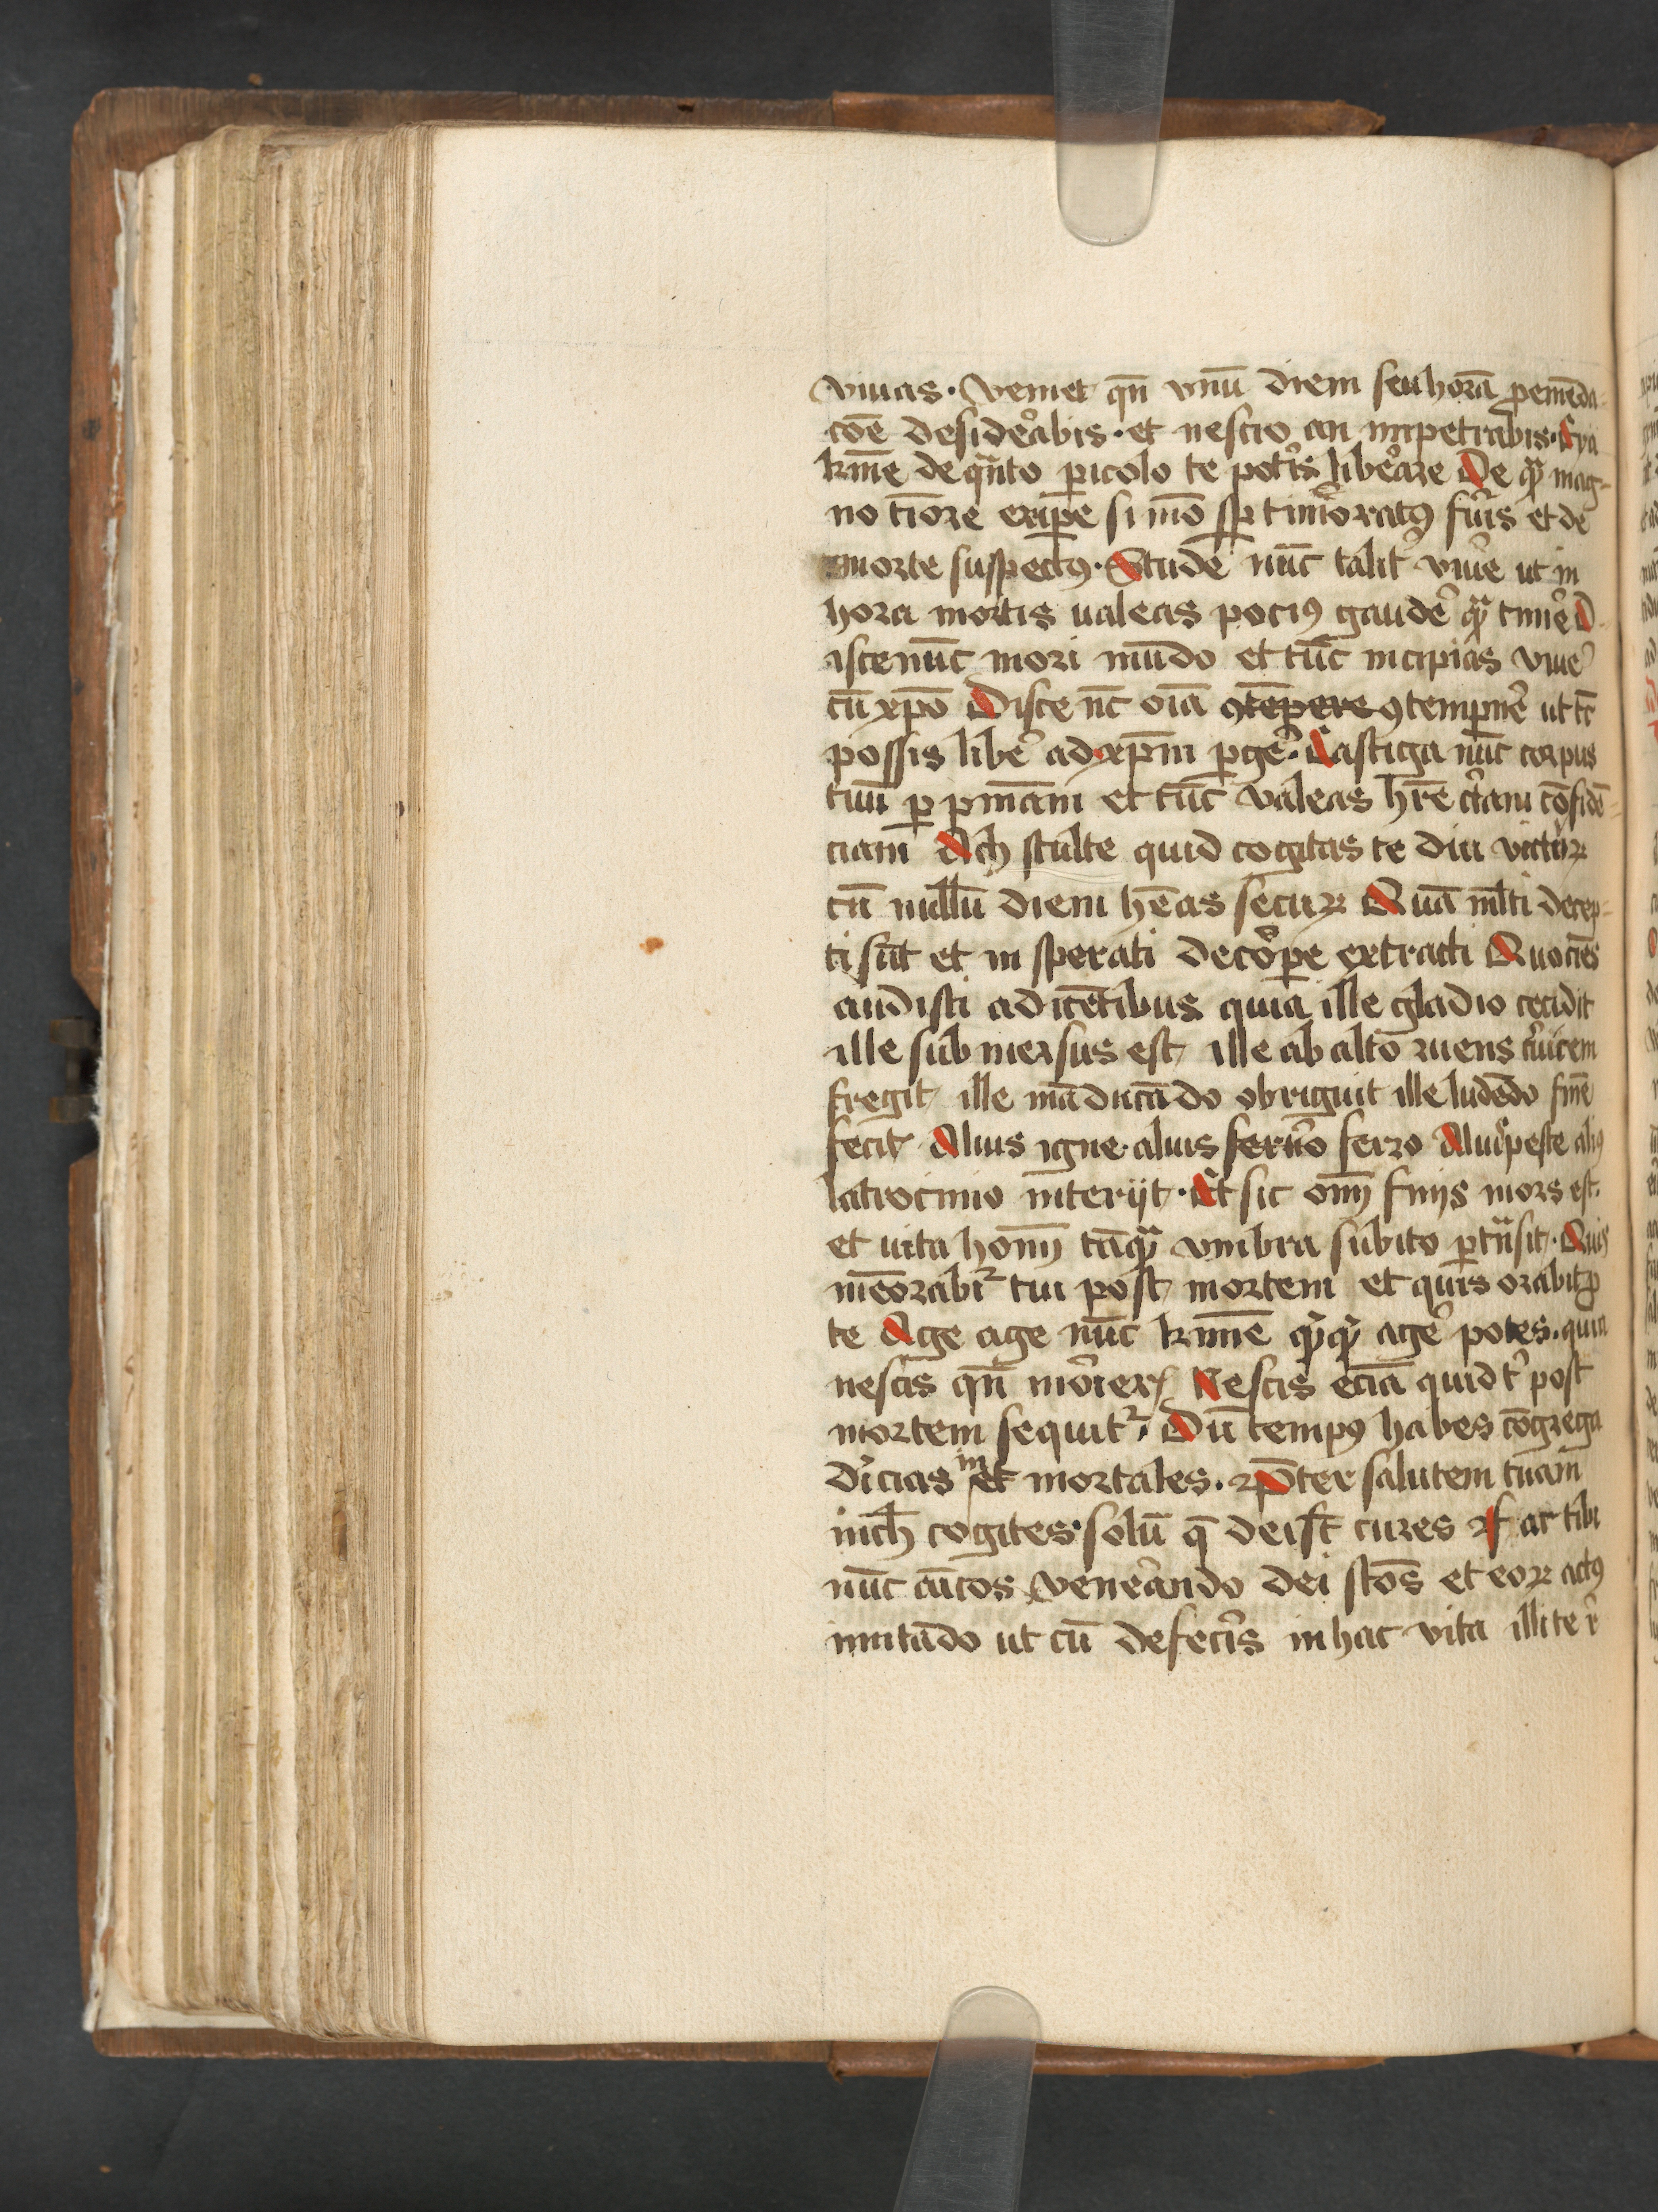 viuas · veniet qn̄ vnū diem seu horā ꝓ emēda-
cōe desiderabis · et nescio an impetrabis · Eya
kīme de qͣnto ꝑicolo te potis liberare De qͣ mag-
no timore eripe si mō sꝑ timoratꝰ fuis et de
morte suspectꝰ · Stude nūc talit viue ut in
hora mortis ualeas pociꝰ gaude qͣ time D
isce nūc mori mūdo et tūc incipias viue
cū xp̄o Disce nc̄ oīa ꝯtēpere ꝯtempne ut tc̄
possis libe ad xp̄m ꝑge · Castiga nūc corpus
tuū ꝑ pīnāam et tūc valeas hr̄e ctam cōfidē-
ciam Ach stulte quid cogitas te diu victuꝝ
cū nullū diem hēas secuꝝ Quā ml̄ti decep-
ti sūt et in sperati de corpe extracti Quocies
audisti a dicētibus quia ille gladio cecidit
ille submersus est ille ab alto ruens cuicem
fregit ille māducādo obriguit ille ludēdo fīne
fecit Alius igne · alius ferro Aliꝰ peste aliꝰ
latrocinio interijt · Et sic om̄ finis mors est ·
et uita hom̄ tāqͣ vmbra subito ꝑtn̄sit · Quis
memorabit tui post mortem et quis orabit ꝓ
te Age age nūc kīme qͥqͥ age potes · quia
nescis qn̄ morieris Nescis eciā quid t post
mortem sequit · Dū tempꝰ habes cōgrega
diicias im et mortales · Pter salutem tuam
nich cogites · solū q̄ dei st̄ cures Fac tibi
nūc amicos venerando dei scōs et eoꝝ actꝰ
imitādo ut cū defecis in hac vita illi te r